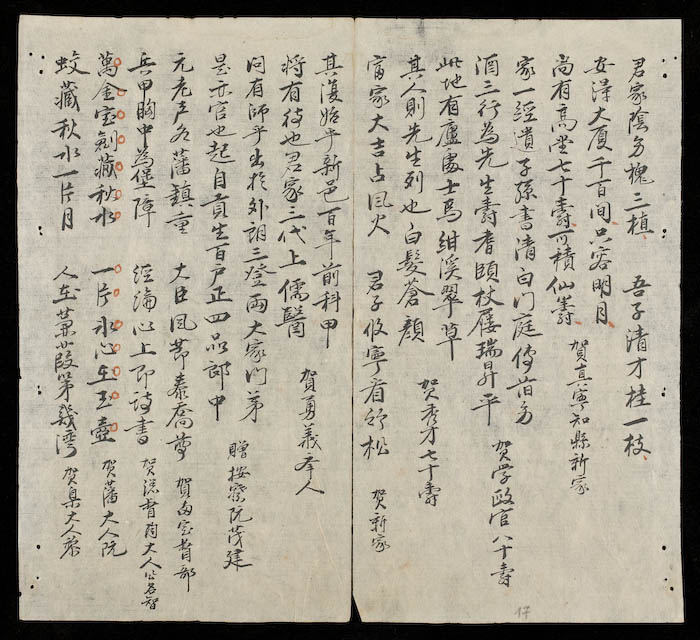 君家陰多槐三植 吾子清才桂一枝
安得大厦千百间只容明月
尚有高堂七十壽可積仙籌 賀真寧知縣新家
家一經遺子孫書清白门庭傳旧
酒三行為先生壽耆頤杖屨瑞昇平 贺学政官八十壽
此地有廬處士焉紺溪翠草
其人則先生列也白髮蒼顔 贺秀才七十壽
富家大吉占風火 君子攸寧看竹松 贺新家
其復始乎新邑百年前科甲
将有待也君家三代上儒醫 賀勇義举人
问有師乎出於外朗三登兩大家门第
是亦官也起自貢生百户正四品郎中 贈按察阮茂建
元老声名藩鎮重 大臣風節泰喬 賀督部
兵甲胸中為堡障 經綸心上即詩書 贺督大人公名智
萬金宝劍藏秋水 一片氷心在玉壺 贺藩大人阮
蛟藏秋水一片月 人在第幾湾 贺臬大人
17